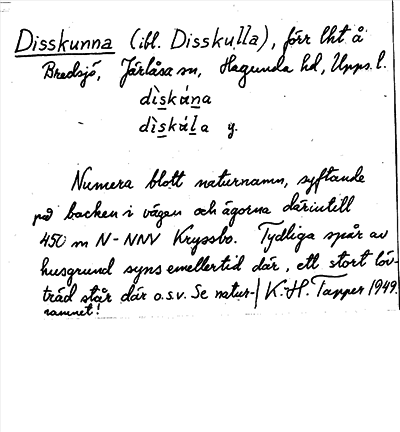 Disskunna (ibl. Disskulla), förr lht å
Bredsjö, Järlåsa sn, Hagunda hd, Upps. l.
dìskúna
dìskúla y.
Numera blott naturnamn, syftande
på backen i vägen och ägorna därintill
450 m N-NNV Kryssbo. Tydliga spår av
husgrund syns emellertid där, ett stort löv-
träd står där o.s.v. Se natur-
namnet!
K.-H. Tapper 1949.